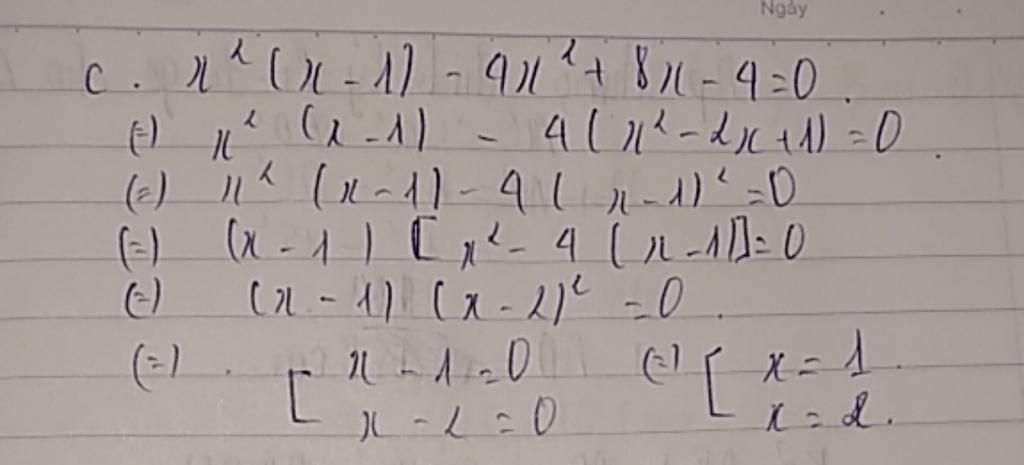 Ngày
c. x² (x - 1) - 4x² + 8x - 4 = 0.
(=) x² (x - 1) - 4 (x² - 2x + 1) = 0.
(=) x² (x - 1) - 4 (x - 1)² = 0
(=) (x - 1) [x² - 4 (x - 1)] = 0
(=) (x - 1) (x - 2)² = 0.
(=) [ x - 1 = 0 (=) [ x = 1.
x - 2 = 0 x = 2.